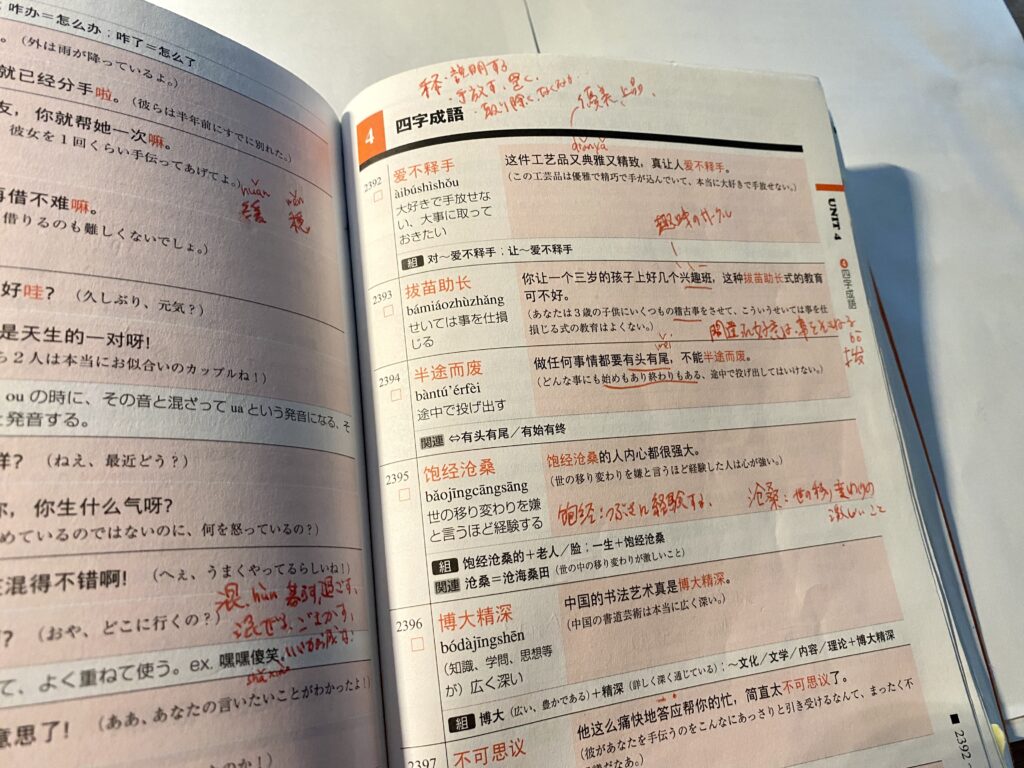 咋办＝怎么办；咋了＝怎么了
。（外は雨が降っているよ。）
就已经分手啦。（彼らは半年前にすでに別れた。）
友，你就帮她一次嘛。
彼女を１回くらい手伝ってあげてよ。）
huǎn
缓
再借不难嘛。
借りるのも難しくないでしょ。）
好哇？（久しぶり、元気？）
是天生的一对呀！
２人は本当にお似合いのカップルね！）
ou の時に、その音と混ざって ua という発音になる、そ
と発音する。
样？（ねえ、最近どう？）
你，你生什么气呀？
めているのではないのに、何を怒っているの？）
混得不错啊！（へえ、うまくやってるらしいね！）
？（おや、どこに行くの？）
混 hùn
混ぜる、ごまかす、
て、よく重ねて使う。ex. 嘿嘿傻笑
意思了！（ああ、あなたの言いたいことがわかったよ！）
釈・説明する
・手放す、置く、
4 四字成語
2392
爱不释手
àibúshìshǒu
大好きで手放せな
い、大事に取って
おきたい
diǎnyǎ
这件工艺品又典雅又精致，真让人爱不释手。
（この工芸品は優雅で精巧で手が込んでいて、本当に大好きで手放せない。）
組 对～爱不释手；让～爱不释手
趣味のサークル
2393
拔苗助长
bámiáozhùzhǎng
せいては事を仕損
じる
你让一个三岁的孩子上好几个兴趣班，这种拔苗助长式的教育
可不好。
（あなたは３歳の子供にいくつもの稽古事をさせて、こういうせいては事を仕
損じる式の教育はよくない。）
2394
半途而废
bàntú'érfèi
途中で投げ出す
wěi
做任何事情都要有头有尾，不能半途而废。
（どんな事にも始めもあり終わりもある、途中で投げ出してはいけない。）
関連 ⇔有头有尾／有始有终
2395
饱经沧桑
bǎojīngcāngsāng
世の移り変わりを嫌
と言うほど経験する
饱经沧桑的人内心都很强大。
（世の移り変わりを嫌と言うほど経験した人は心が強い。）
饱经：つぶさに経験する、
沧桑：世の移り変わりの
激しいこと
組 饱经沧桑的＋老人／脸；一生＋饱经沧桑
関連 沧桑＝沧海桑田（世の中の移り変わりが激しいこと）
2396
博大精深
bódàjīngshēn
（知識、学問、思想等
が）広く深い
中国的书法艺术真是博大精深。
（中国の書道芸術は本当に広く深い。）
組 博大（広い、豊かである）＋精深（詳しく深く通じている）；～文化／文学／内容／理论＋博大精深
2397
不可思议
他这么痛快地答应帮你的忙，简直太不可思议了。
（彼があなたを手伝うのをこんなにあっさりと引き受けるなんて、まったく不
UNIT 4
4 四字成語
■ 2392